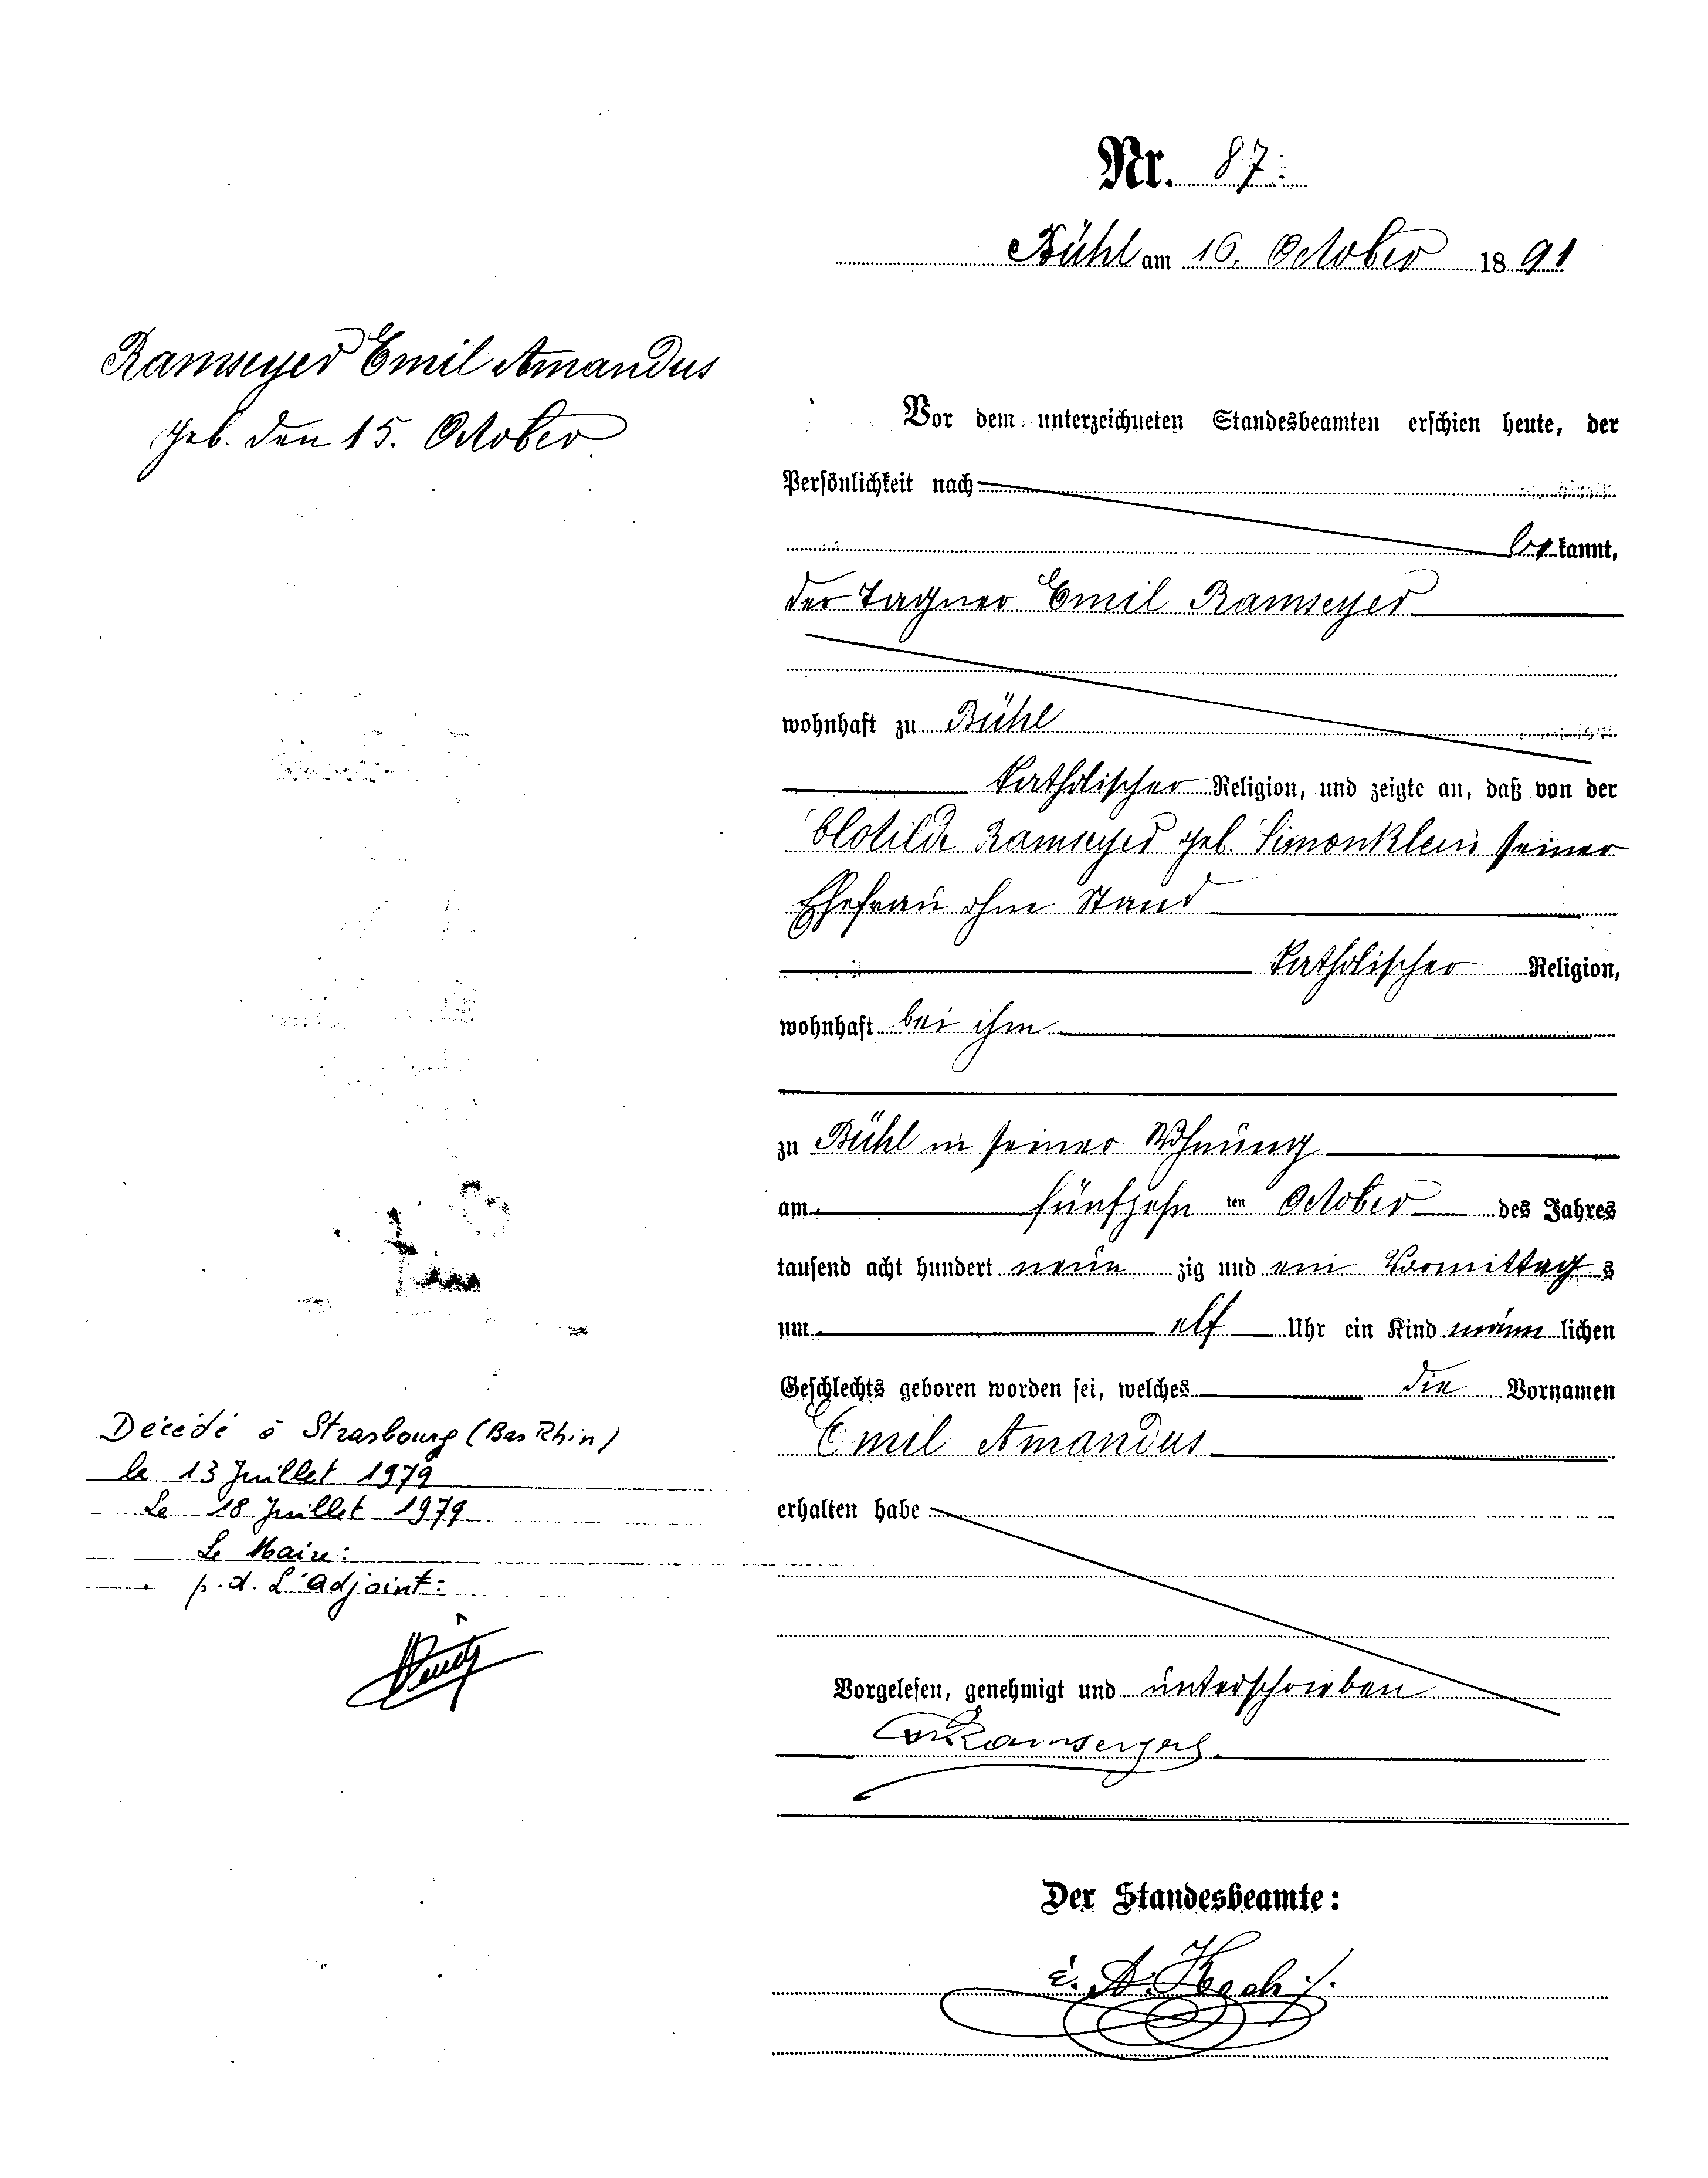 Nr. 87.
Bühl am 16. October 1891
Ramseyer Emil Amandus
geb. den 15. October
Vor dem unterzeichneten Standesbeamten erschien heute, der
Persönlichkeit nach
bekannt,
der Tagner Emil Ramseyer
wohnhaft zu Bühl
katholischer Religion, und zeigte an, daß von der
Clotilde Ramseyer geb. Simonklein seiner
Ehefrau ohne Stand
katholischer Religion,
wohnhaft bei ihm
zu Bühl in seiner Wohnung
am fünfzehn ten October des Jahres
tausend acht hundert neun zig und ein Vormittags
um elf Uhr ein Kind männlichen
Geschlechts geboren worden sei, welches die Vornamen
Emil Amandus
erhalten habe
Vorgelesen, genehmigt und unterschrieben
Ramseyer
Der Standesbeamte:
A. Koch
Décédé à Strasbourg (Bas Rhin)
le 13 Juillet 1979
Le 18 Juillet 1979
Le Maire:
p.d. L'adjoint: